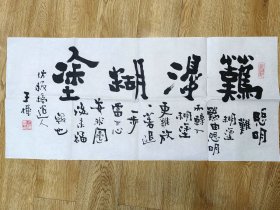 難得糊塗
聰明
難
糊塗
難由聰明
而轉入
糊塗
更難放
一著退
一步
當下心
安非圖
後來福
報也
板橋道人
王博